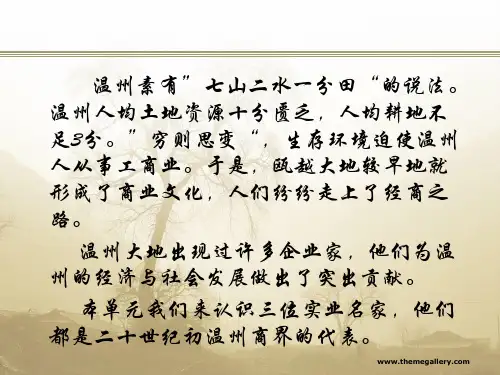 温州素有”七山二水一分田“的说法。
温州人均土地资源十分匮乏，人均耕地不
足3分。”穷则思变“，生存环境迫使温州
人从事工商业。于是，瓯越大地较早地就
形成了商业文化，人们纷纷走上了经商之
路。
温州大地出现过许多企业家，他们为温
州的经济与社会发展做出了突出贡献。
本单元我们来认识三位实业名家，他们
都是二十世纪初温州商界的代表。
www.themegallery.com